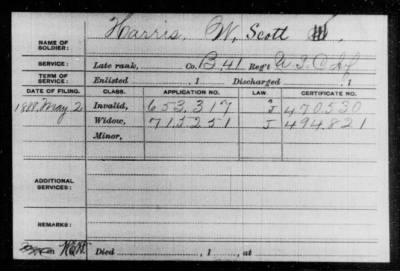 NAME OF SOLDIER: Harris, W. Scott
SERVICE: Late rank, Co. B, 41 Reg't U.S.C. Inf
TERM OF SERVICE: Enlisted , 1 Discharged , 1
DATE OF FILING. CLASS. APPLICATION NO. LAW. CERTIFICATE NO.
1888, May 2 Invalid, 653,317 J 470530
Widow, 715251 J 494,821
Minor,
ADDITIONAL SERVICES:
REMARKS:
Died , 1 , at